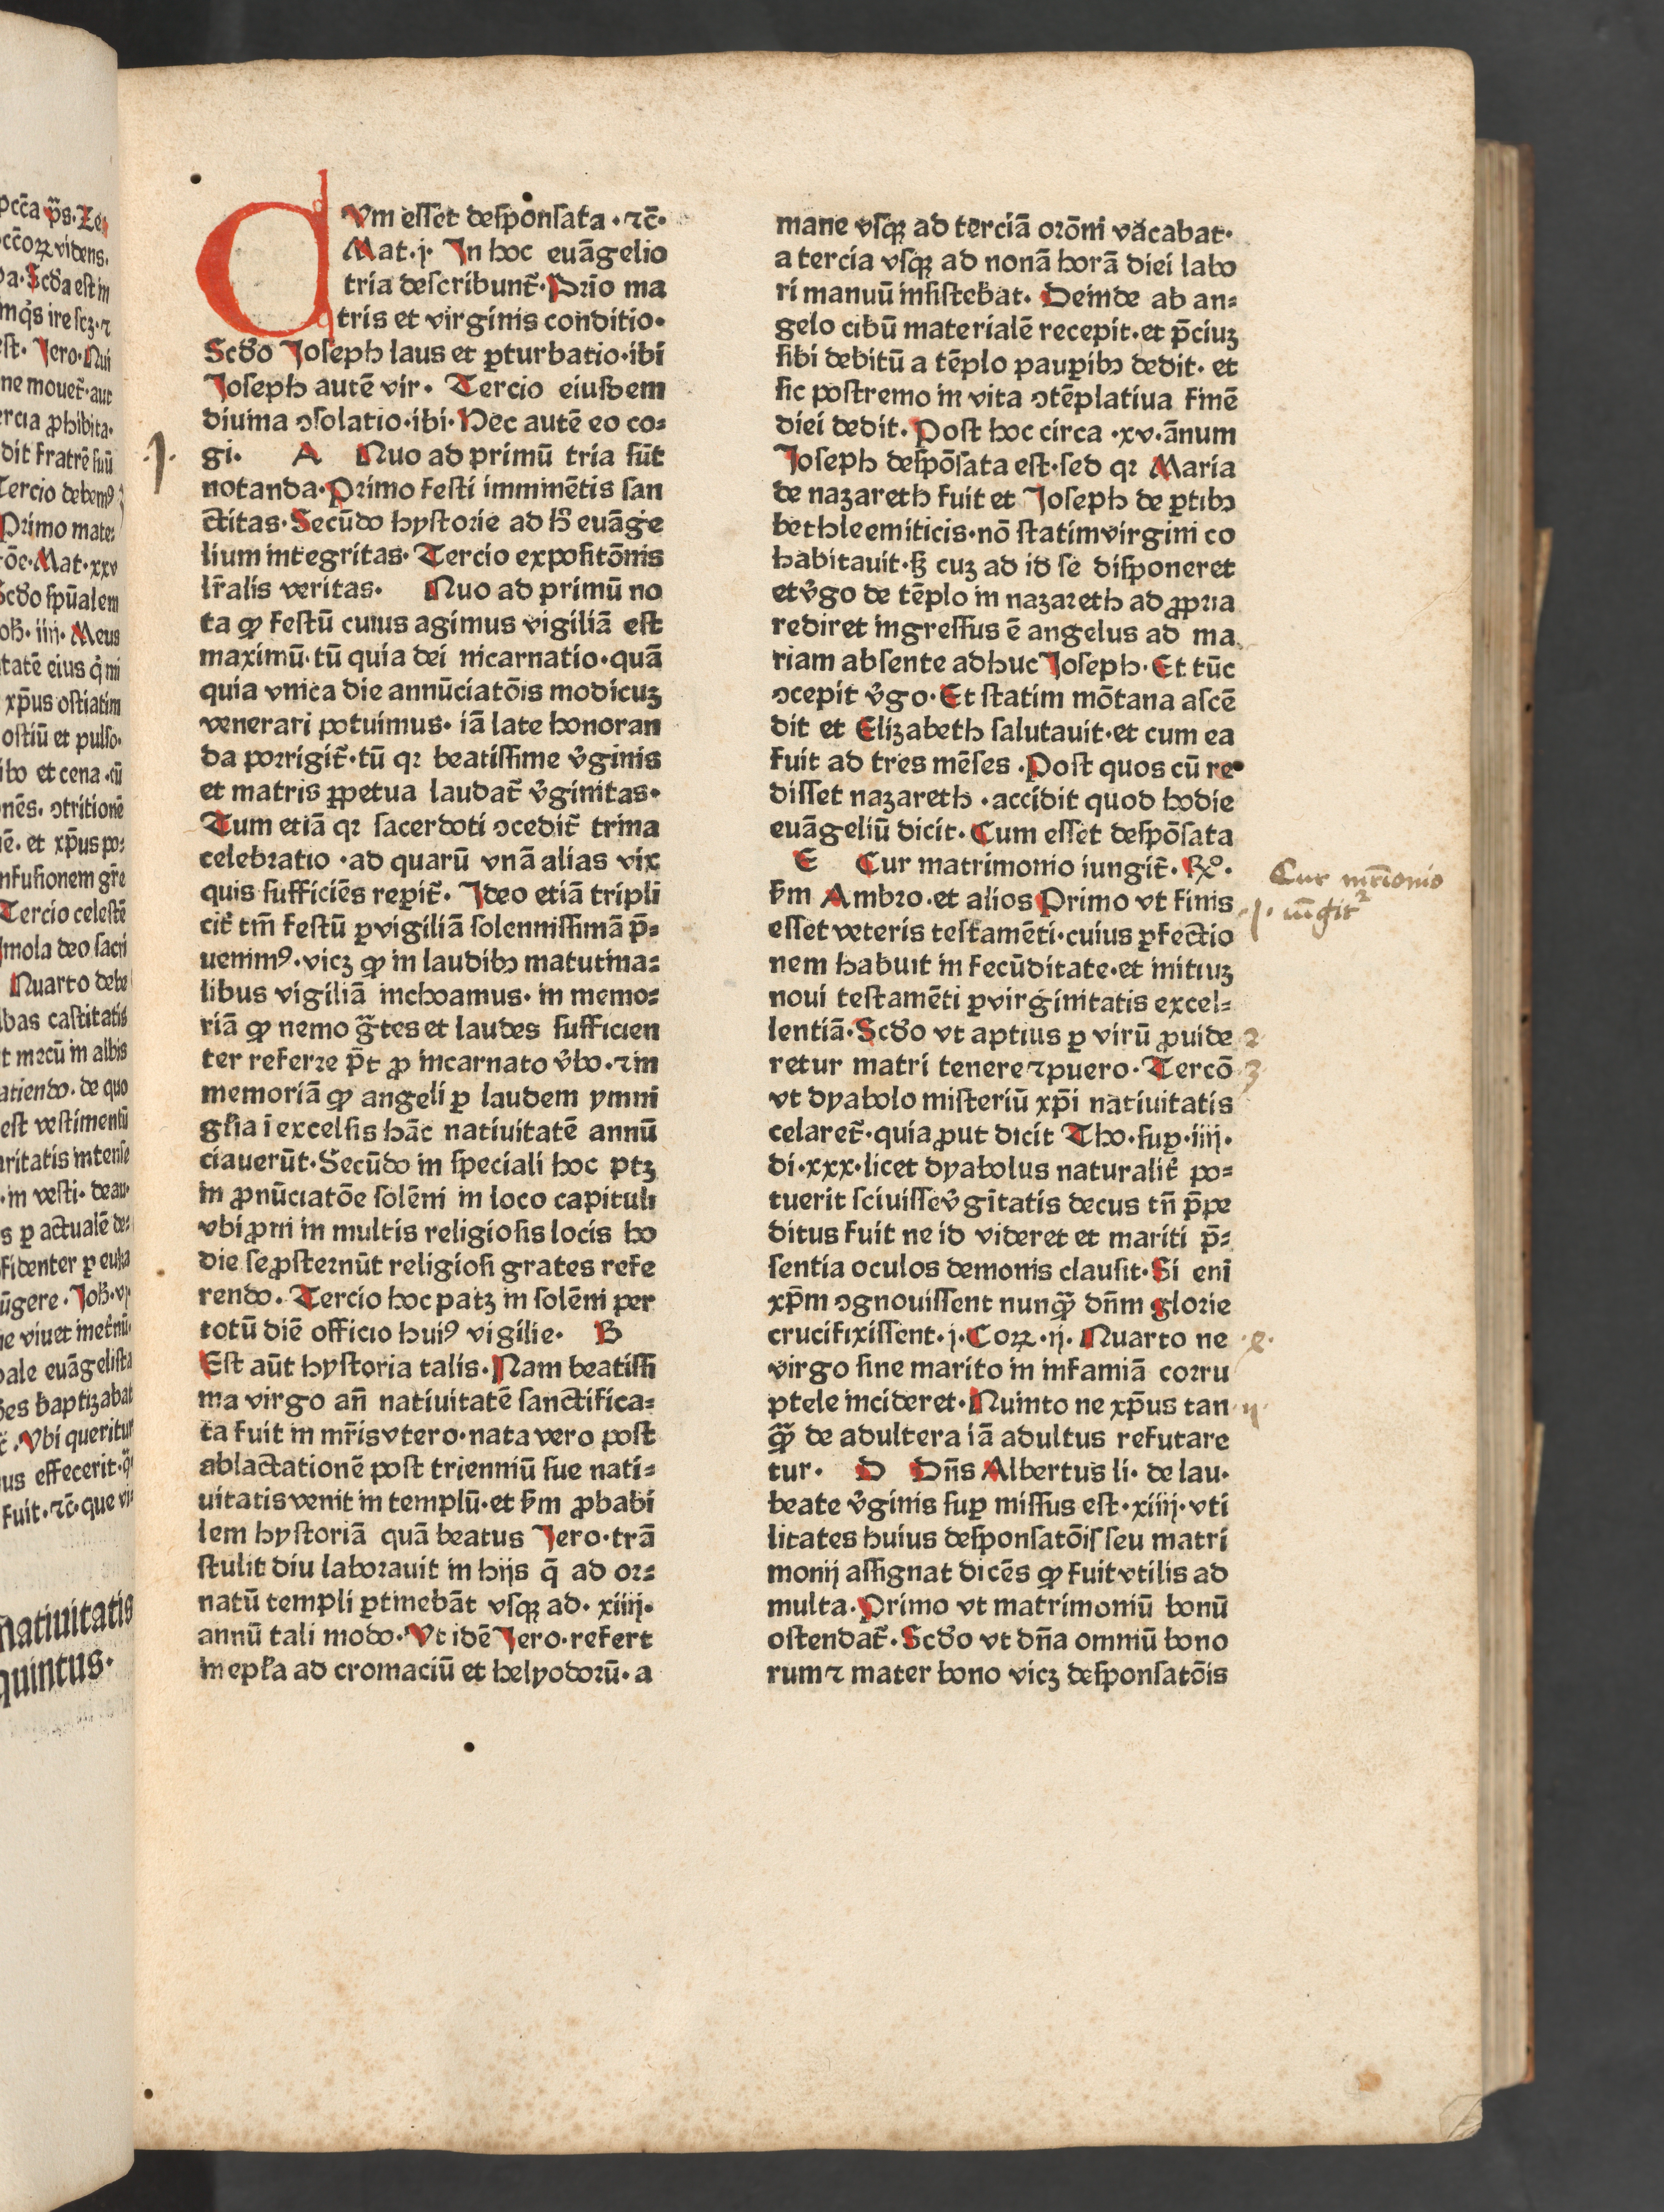 pcc̄a p̄s. Ze
cc̄oꝝ videns.
a. Scd̄a est in
mq̄s ire scꝫ ⁊
est. Jero. Qui
ne mouet̄. aut
ercia ꝓhibita.
dit fratrē suū
Tercio debemꝰ
Primo mate⸗
Mat. xxv
Scd̄o spūalem
oh̄. iiij. Meus
tatē eius q̄ mi
xp̄us ostiatim
ostiū et pulso.
ibo et cena. cū
nēs. ↄtritionē
ē. et xp̄us po⸗
nfusionem gr̄e
Tercio celestē
mola deo sacri
Quarto debe
bas castitatis
t mecū in albis
atiendo. de quo
est vestimentū
aritatis intense
in vesti. deau.
s ꝑ actualē de⸗
fidenter ꝑ euka
ūgere. Joh̄. vj
ie viuet
ale euāgelista
es baptizabat
Vbi queritur
us effecerit. q̄
fuit. ⁊c̄. que vi⸗
Natiuitatis
quintus.
CVm esset desponsata. ⁊c̄.
Mat. j. In hoc euāgelio
tria describunt̄. Prīo ma
tris et virginis conditio.
Scd̄o Joseph laus et ꝑturbatio. ibi
Joseph autē vir. Tercio eiusdem
diuina ↄsolatio. ibi. Hec autē eo co⸗
gi. A Quo ad primū tria sūt
notanda. Primo festi imminētis san
ctitas. Secūdo hystorie ad h̄ euāge
lium integritas. Tercio expositōnis
lr̄alis veritas. Quo ad primū no
ta ꝙ festū cuius agimus vigiliā est
maximū. tū quia dei nicarnatio. quā
quia vnica die annūciatōis modicuꝫ
venerari potuimus. iā late honoran
da porrigit̄. tū qꝛ beatissime v̄ginis
et matris ꝑpetua laudat̄ v̄ginitas.
Tum etiā qꝛ sacerdoti ↄcedit̄ trina
celebratio. ad quarū vnā alias vix
quis sufficiēs reꝑit̄. Ideo etiā tripli
cit̄ tm̄ festū ꝑvigiliā solennissimā p̄⸗
uenimꝰ. vicꝫ ꝙ in laudibꝫ matutina⸗
libus vigiliā inchoamus. in memo⸗
riā ꝙ nemo gr̄tes et laudes sufficien
ter referre p̄t ꝓ incarnato v̄bo. ⁊ in
memoriā ꝙ angeli ꝑ laudem ymni
gl̄ia ī excelsis hāc natiuitatē annū
ciauerūt. Secūdo in speciali hoc ptꝫ
in ꝓnūciatōe solēni in loco capituli
vbi ꝓni in multis religiosis locis ho
die se ꝓsternūt religiosi grates refe
rendo. Tercio hoc patꝫ in solēni per
totū diē officio huiꝰ vigilie. B
Est aūt hystoria talis. Nam beatissi
ma virgo an̄ natiuitatē sanctifica⸗
ta fuit in mr̄is vtero. nata vero post
ablactationē post trienniū sue nati⸗
uitatis venit in templū. et s̄m ꝓbabi
lem hystoriā quā beatus Jero. trā
stulit diu laborauit in hijs q̄ ad or⸗
natū templi ꝑtinebāt vsqꝫ ad. xiiij.
annū tali modo. Vt idē Jero. refert
in epl̄a ad cromaciū et helyodorū. a
mane vsqꝫ ad terciā orōni vacabat.
a tercia vsqꝫ ad nonā horā diei labo
ri manuū insistebat. Deinde ab an⸗
gelo cibū materialē recepit. et p̄ciuꝫ
sibi debitū a tēplo pauꝑibꝫ dedit. et
sic postremo in vita ↄtēplatiua finē
diei dedit. Post hoc circa. xv. ānum
Joseph despōsata est. sed qꝛ Maria
de nazareth fuit et Joseph de ꝑtibꝫ
bethleemiticis. nō statim virgini co
habitauit. sꝫ cuꝫ ad id se disponeret
et v̄go de tēplo in nazareth ad ꝓpria
rediret ingressus ē angelus ad ma
riam absente adhuc Joseph. Et tūc
ↄcepit v̄go. Et statim mōtana ascē
dit et Elizabeth salutauit. et cum ea
fuit ad tres mēses. Post quos cū re
disset nazareth. accidit quod hodie
euāgeliū dicit. Cum esset despōsata
E Cur matrimonio iungit̄. ℞o.
s̄m Ambro. et alios Primo vt finis
esset veteris testamēti. cuius ꝑfectio
nem habuit in fecūditate. et initiuꝫ
noui testamēti ꝑvirginitatis excel⸗
lentiā. Scd̄o vt aptius ꝑ virū ꝓuide
retur matri tenere ⁊ puero. Tercō
vt dyabolo misteriū xp̄i natiuitatis
celaret̄. quia ꝓut dicit Tho. suꝑ. iiij.
di. xxx. licet dyabolus naturalit̄ po⸗
tuerit sciuisse v̄gītatis decus tn̄ p̄pe
ditus fuit ne id videret et mariti p̄⸗
sentia oculos demonis clausit. Si enī
xp̄m ↄgnouissent nunqꝫ̄ dn̄m glorie
crucifixissent. j. Coꝝ. ij. Quarto ne
virgo sine marito in infamiā corru
ptele incideret. Quinto ne xp̄us tan
qꝫ̄ de adultera iā adultus refutare
tur. D Dn̄s Albertus li. de lau.
beate v̄ginis suꝑ missus est. xiiij. vti
litates huius desponsatōis seu matri
monij assignat dicēs ꝙ fuit vtilis ad
multa. Primo vt matrimoniū bonū
ostendat̄. Scd̄o vt dn̄a omniū bono
rum ⁊ mater bono vicꝫ desponsatōis
.1.
Cur mr̄ionio
.1. iūgit2
2
3